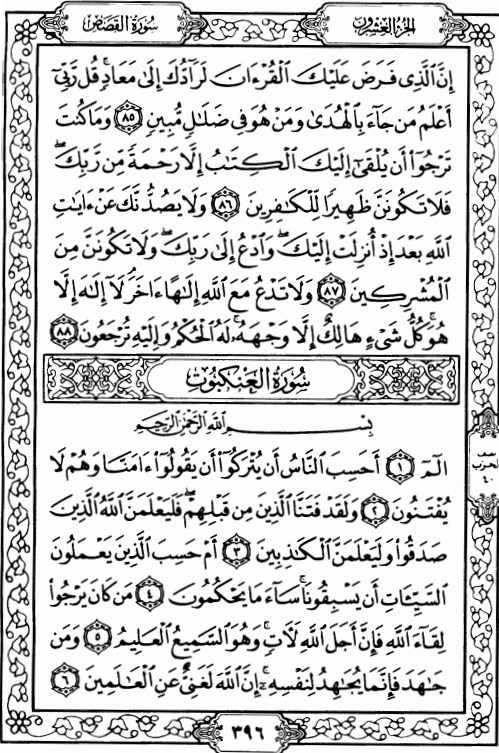 سورة القصص
الجزء العشرون
إِنَّ ٱلَّذِى فَرَضَ عَلَيْكَ ٱلْقُرْءَانَ لَرَآدُّكَ إِلَىٰ مَعَادٍ ۚ قُل رَّبِّىٓ
أَعْلَمُ مَن جَآءَ بِٱلْهُدَىٰ وَمَنْ هُوَ فِى ضَلَٰلٍ مُّبِينٍ ٨٥ وَمَا كُنتَ
تَرْجُوٓا۟ أَن يُلْقَىٰٓ إِلَيْكَ ٱلْكِتَٰبُ إِلَّا رَحْمَةً مِّن رَّبِّكَ ۖ
فَلَا تَكُونَنَّ ظَهِيرًا لِّلْكَٰفِرِينَ ٨٦ وَلَا يَصُدُّنَّكَ عَنْ ءَايَٰتِ
ٱللَّهِ بَعْدَ إِذْ أُنزِلَتْ إِلَيْكَ ۖ وَٱدْعُ إِلَىٰ رَبِّكَ ۖ وَلَا تَكُونَنَّ مِنَ
ٱلْمُشْرِكِينَ ٨٧ وَلَا تَدْعُ مَعَ ٱللَّهِ إِلَٰهًا ءَاخَرَ ۘ لَآ إِلَٰهَ إِلَّا
هُوَ ۚ كُلُّ شَىْءٍ هَالِكٌ إِلَّا وَجْهَهُۥ ۚ لَهُ ٱلْحُكْمُ وَإِلَيْهِ تُرْجَعُونَ ٨٨
سُورَةُ العَنكبُوت
بِسْمِ ٱللَّهِ ٱلرَّحْمَٰنِ ٱلرَّحِيمِ
الٓمٓ ١ أَحَسِبَ ٱلنَّاسُ أَن يُتْرَكُوٓا۟ أَن يَقُولُوٓا۟ ءَامَنَّا وَهُمْ لَا
يُفْتَنُونَ ٢ وَلَقَدْ فَتَنَّا ٱلَّذِينَ مِن قَبْلِهِمْ ۖ فَلَيَعْلَمَنَّ ٱللَّهُ ٱلَّذِينَ
صَدَقُوا۟ وَلَيَعْلَمَنَّ ٱلْكَٰذِبِينَ ٣ أَمْ حَسِبَ ٱلَّذِينَ يَعْمَلُونَ
ٱلسَّيِّـَٔاتِ أَن يَسْبِقُونَا ۚ سَآءَ مَا يَحْكُمُونَ ٤ مَن كَانَ يَرْجُوا۟
لِقَآءَ ٱللَّهِ فَإِنَّ أَجَلَ ٱللَّهِ لَـَٔاتٍ ۚ وَهُوَ ٱلسَّمِيعُ ٱلْعَلِيمُ ٥ وَمَن
جَٰهَدَ فَإِنَّمَا يُجَٰهِدُ لِنَفْسِهِۦٓ ۚ إِنَّ ٱللَّهَ لَغَنِىٌّ عَنِ ٱلْعَٰلَمِينَ ٦
نصف
الحزب
٤٠
٣٩٦